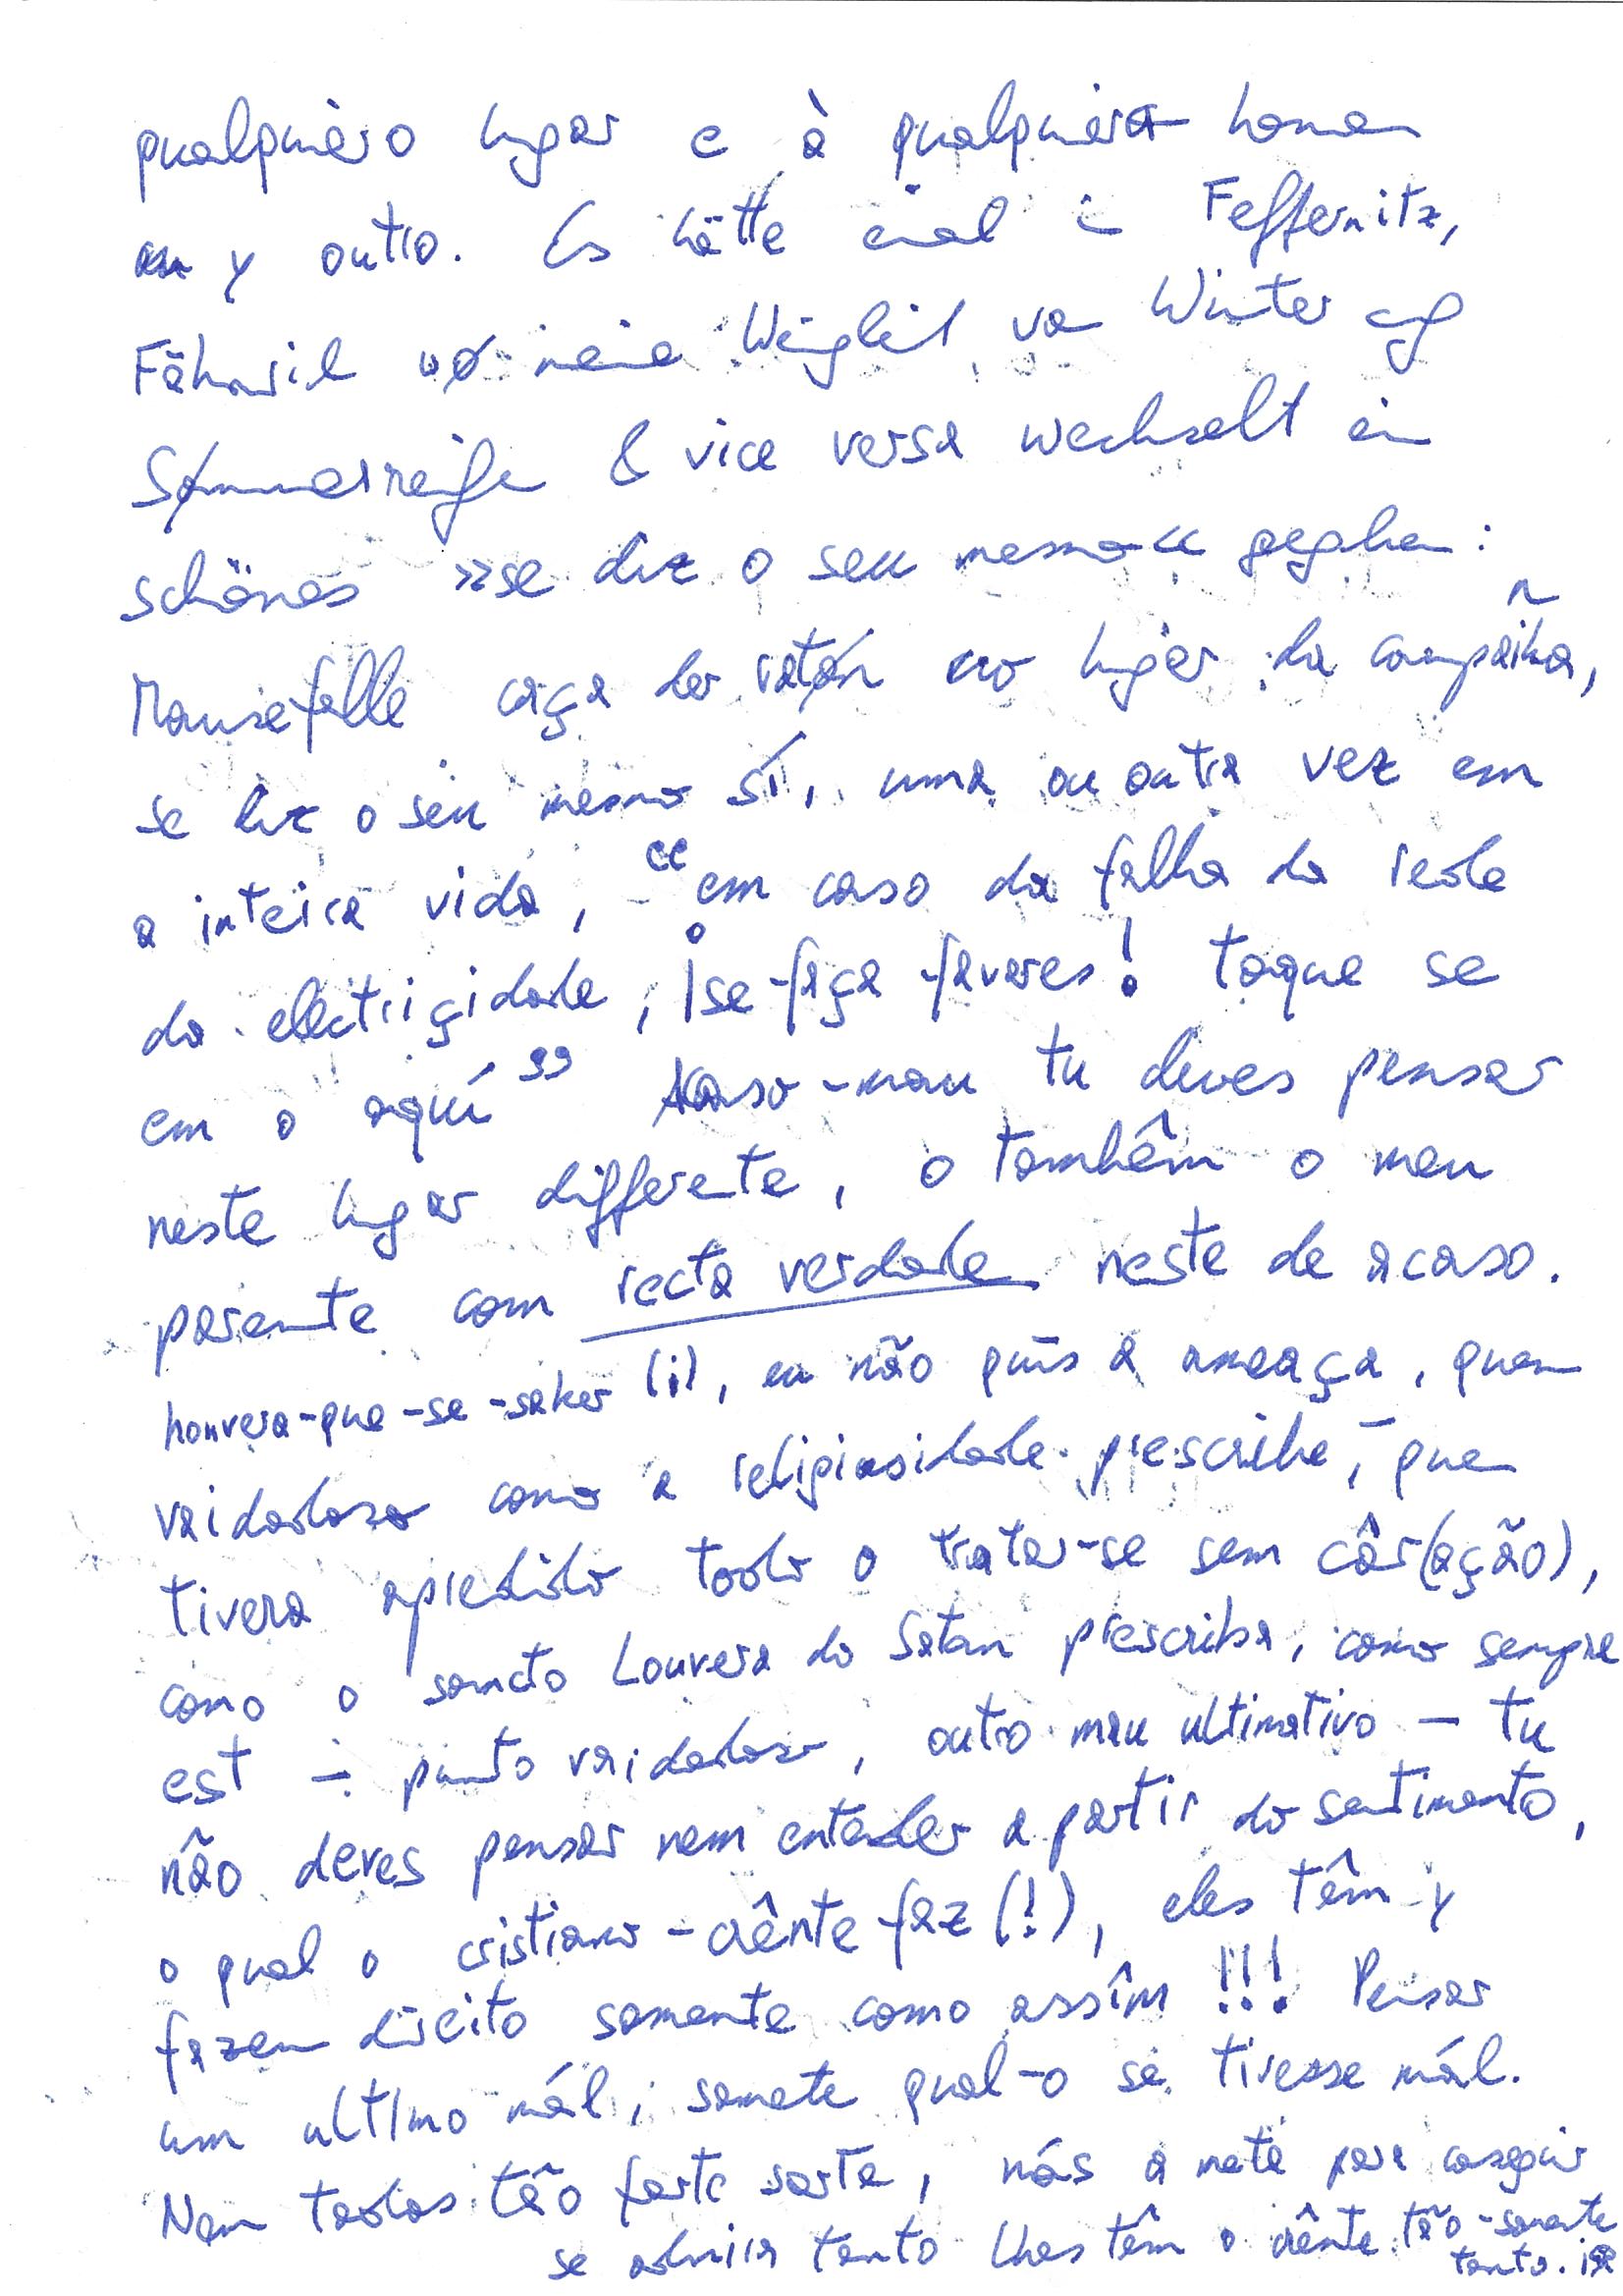 qualquiero lugar e à qualquiera homen
y outro. Es hätte einal in Feffernitz,
Fähnrich meine Wingleit von Winter auf
Sommerreife & vice versa wechselt ein
schönes »se diz o seu mesmo« gegeben:
Mausefalle caça do ratón no lugar da compañha,
se diz o seu mesmo sí, uma ou outra vez em
a inteira vida, “em caso da falha da rede
da electriçidade, ¡se-faça-favores! toque se
em o aquí” Kaso-mau tu deves pensar
neste lugar differente, o tambêm o meu
parente com recta verdade neste de acaso.
houvera-que-se-saber (¡), eu não quis a ameaça, quem
vaidadoso como a religiosidade prescribe, quem
tivera apredido todo o tratar-se sem côr(ação),
como o sancto Louvera do Satan prescriba, como sempre
est – punto vaidadoso, outro mau ultimativo – tu
não deves pensar nem entender a partir do sentimento,
o qual o cristiano-crênte faz (!), eles têm y
fazem direito somente como assîm !!! Pensar
um ultimo mál, somete qual-o se tivesse mál.
Nem todos tão forte sorte, nós a meta para conseguir
se tanto lhes têm o crênte tão-somente
tanto.